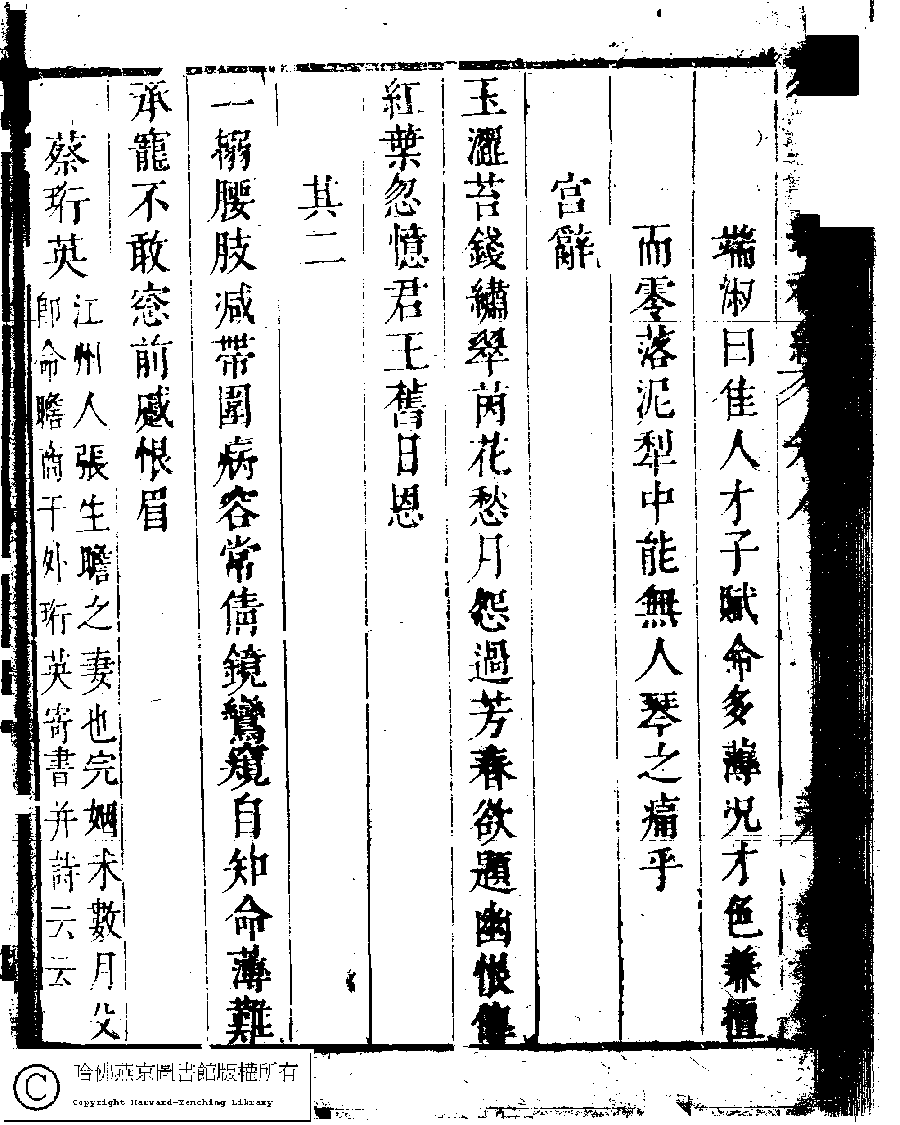 端淑曰佳人才子賦命多薄况才色兼擅
而零落泥犁中能無人琴之痛乎
宮辭
玉灑苔錢繡翠茵花愁月怨過芳春欲題幽恨傳
紅葉忽憶君王舊日恩
其二
一搦腰肢減帶圍病容常倩鏡鸞窺自知命薄難
承寵不敢窓前蹙恨眉
蔡珩英
江州人張生瞻之妻也完姻未數月父
郎命瞻商于外珩英寄書并詩云云
哈佛燕京圖書館版權所有
Copyright Harvard-Yenching Library